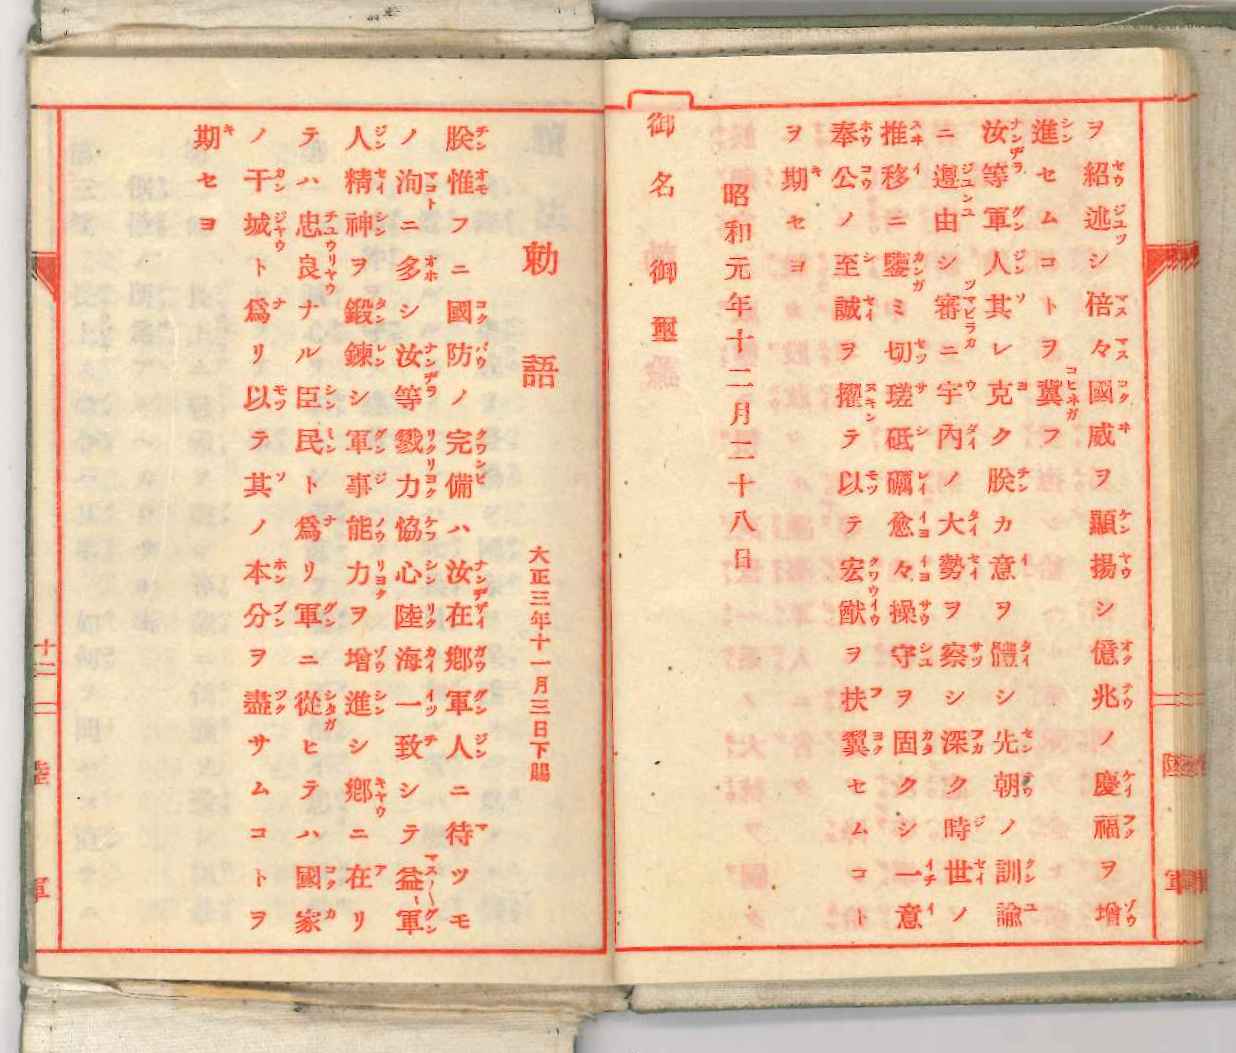 ヲ紹述シ倍々國威ヲ顯揚シ億兆ノ慶福ヲ增
進セムコトヲ冀フ
汝等軍人其レ克ク朕カ意ヲ體シ先朝ノ訓諭
ニ遵由シ審ニ宇內ノ大勢ヲ察シ深ク時世ノ
推移ニ鑒ミ切瑳砥礪愈々操守ヲ固クシ一意
奉公ノ至誠ヲ擢テ以テ宏猷ヲ扶翼セムコト
ヲ期セヨ
昭和元年十二月二十八日
御名御璽
勅語
大正三年十一月三日下賜
朕惟フニ國防ノ完備ハ汝在鄕軍人ニ待ツモ
ノ洵ニ多シ汝等戮力協心陸海一致シテ益軍
人精神ヲ鍛鍊シ軍事能力ヲ增進シ鄕ニ在リ
テハ忠良ナル臣民ト爲リ軍ニ從ヒテハ國家
ノ干城ト爲リ以テ其ノ本分ヲ盡サムコトヲ
期セヨ